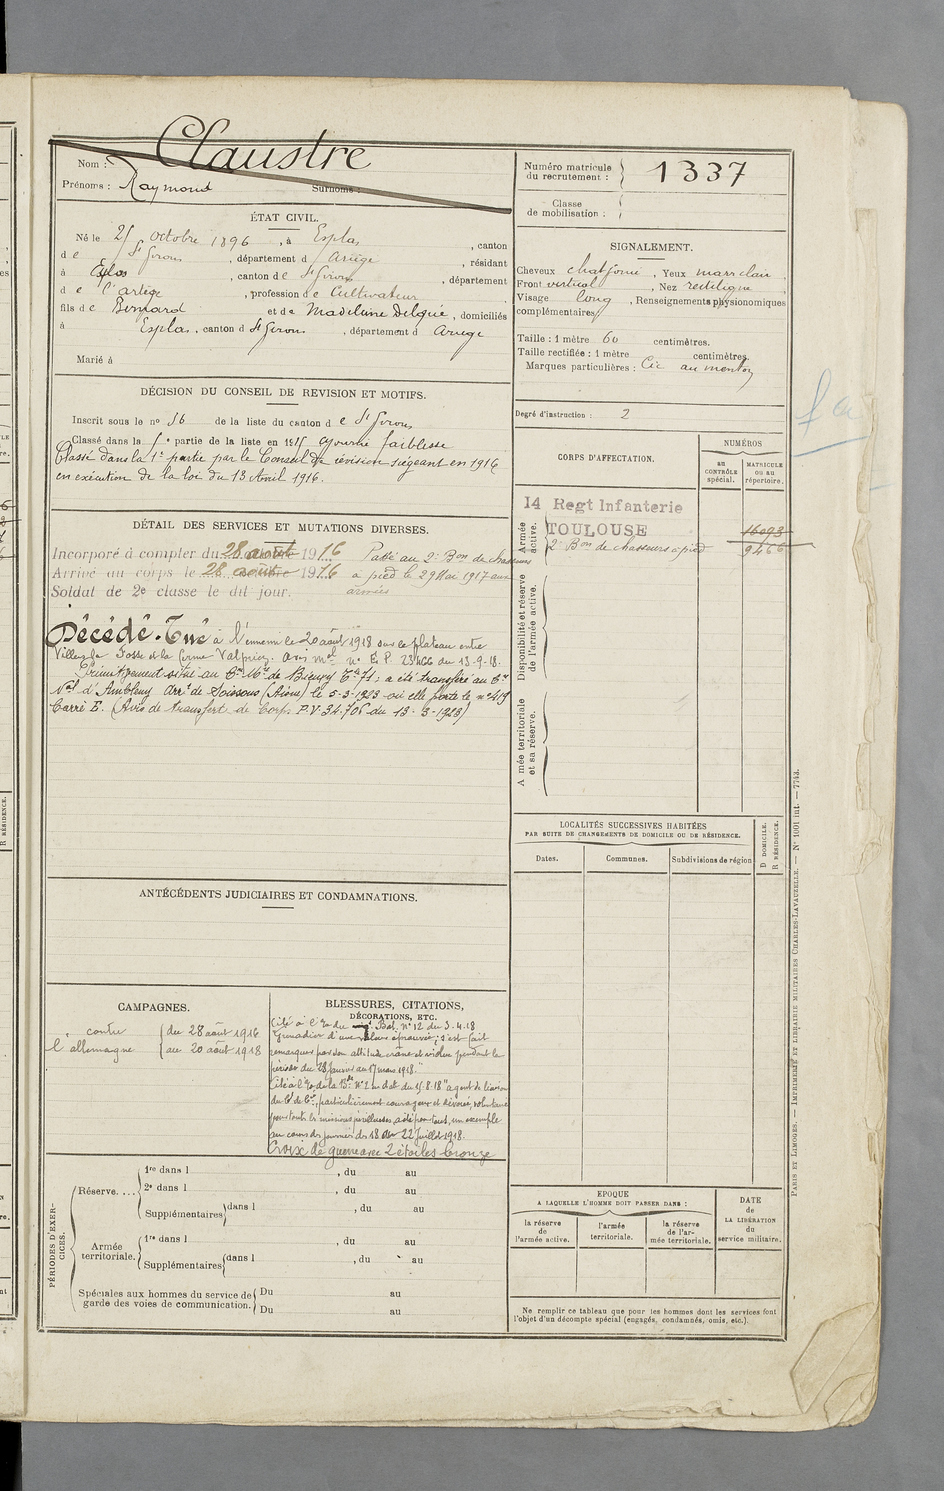 Nom : Claustre
Prénoms : Raymond Surnome :
Numéro matricule
du recrutement : 1337
Classe
de mobilisation :
ÉTAT CIVIL.
Né le 25 octobre 1896, à Esplas, canton
de St Girons, département d Ariège, résidant
à Esplas, canton de St Girons, département
de l'ariège, profession de Cultivateur
fils de Bernard et de Madeleine Delqué, domiciliés
à Esplas, canton d St Girons, département d Ariège
Marié à
SIGNALEMENT.
Cheveux chat foncé, Yeux marr clair
Front vertical, Nez rectiligne
Visage long, Renseignements physionomiques
complémentaires
Taille : 1 mètre 60 centimètres.
Taille rectifiée : 1 mètre centimètres.
Marques particulières : Cic au menton
Degré d'instruction : 2
DÉCISION DU CONSEIL DE REVISION ET MOTIFS.
Inscrit sous le no 56 de la liste du canton de St Girons
Classé dans la 5e partie de la liste en 1915 ajourné faiblesse
Classé dans la 1e partie par le Conseil de révision siégeant en 1916
en exécution de la loi du 13 Avril 1916.
CORPS D'AFFECTATION.
NUMÉROS
au
CONTRÔLE
spécial.
MATRICULE
ou au
répertoire.
Armée
active.
14 Regt Infanterie
TOULOUSE 16093
2e Bon de chasseurs à pied 9466
Disponibilité et réserve
de l'armée active.
A mée territoriale
et sa réserve.
DÉTAIL DES SERVICES ET MUTATIONS DIVERSES.
Incorporé à compter du 28 août 1916 Passé au 2e Bon de chasseurs
Arrivé au corps le 28 août 1916 à pied le 29 Mai 1917 aux
Soldat de 2e classe le dit jour. armées
Décédé. Tué à l'ennemi le 20 août 1918 sur le plateau entre
Villers la Fosse et la ferme Valpriez. avis mel no E.P. 23466 du 13-9-18.
Primitivement situé au Cre Mre de Bieuxy Ce 71 : a été transféré au Cre
Nal d'Ambleny Arrt de Soissons (Aisne) le 5-3-1923 où elle porte le no 419
Carré E. (Avis de transfert de Corps P.V. 34.705 du 13-3-1923)
LOCALITÉS SUCCESSIVES HABITÉES
PAR SUITE DE CHANGEMENTS DE DOMICILE OU DE RÉSIDENCE.
Dates.
Communes.
Subdivisions de région
D DOMICILE.
R RÉSIDENCE.
ANTÉCÉDENTS JUDICIAIRES ET CONDAMNATIONS.
CAMPAGNES.
contre du 28 août 1916
l'allemagne au 20 août 1918
BLESSURES, CITATIONS,
DÉCORATIONS, ETC.
Cité à l'O. du Bat. No 12 du 3.4.18
"Grenadier d'une valeur éprouvée, s'est fait
remarquer par son attitude crâne et résolue pendant la
période du 28 Janvier au 17 mars 1918."
Cité à l'O. de la No 2 en date du 15.8.18 "agent de liaison
du Ct de Cie, particulièrement courageux et dévoué, volontaire
pour toutes les missions périlleuses, a été pour tous, un exemple
au cours des journées du 18 au 22 Juillet 1918.
Croix de guerre avec 2 étoiles bronze
PÉRIODES D'EXER-
CICES.
Réserve....
1re dans l , du au
2e dans l , du au
Supplémentaires dans l , du au
Armée
territoriale.
1re dans l , du au
Supplémentaires dans l , du au
Spéciales aux hommes du service de
garde des voies de communication.
Du au
Du au
EPOQUE
A LAQUELLE L'HOMME DOIT PASSER DANS :
la réserve
de
l'armée active.
l'armée
territoriale.
la réserve
de l'ar-
mée territoriale.
DATE
de
LA LIBÉRATION
du
service militaire.
Ne remplir ce tableau que pour les hommes dont les services font
l'objet d'un décompte spécial (engagés, condamnés, omis, etc.).
PARIS ET LIMOGES. — IMPRIMERIE ET LIBRAIRIE MILITAIRES CHARLES-LAVAUZELLE. — N° 1001 int. — 7743.